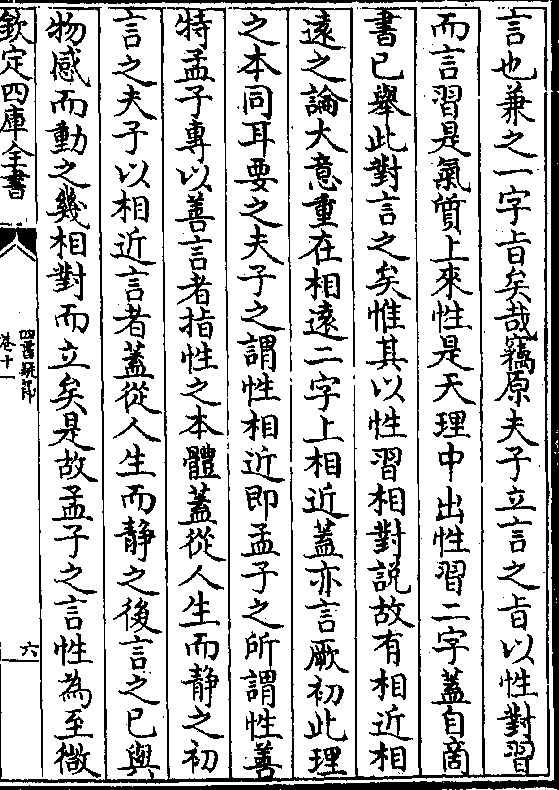 言也兼之一字旨矣哉竊原夫子立言之旨以性對習
而言習是氣質上來性是天理中出性習二字蓋自商
書已舉此對言之矣惟其以性習相對說故有相近相
遠之論大意重在相遠二字上相近蓋亦言厥初此理
之本同耳要之夫子之謂性相近即孟子之所謂性善
特孟子專以善言者指性之本體蓋從人生而靜之初
言之夫子以相近言者蓋從人生而靜之後言之已與
物感而動之幾相對而立矣是故孟子之言性為至微
欽定四庫全書
四書疑節
卷十
六